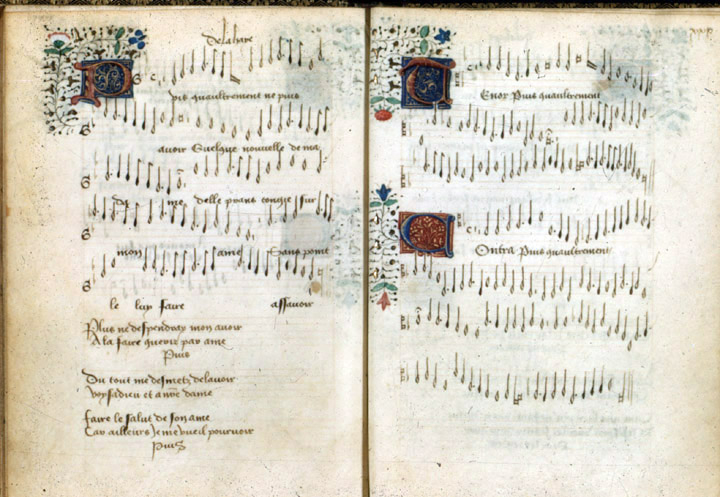 Delahaie
Puis quaultrement ne puis
avoir Quelque nouvelle de ma
Da me delle prans congie sur
mon ame Sans point
le luy faire assavoir
Plus ne despendray mon avoir
A la faire querir par ame
Puis
Du tout me desmetz delavoir
voys adieu et aultre dame
faire le salut de son ame
Car ailleurs je me vueil pourvoir
Puis
Tenor Puis quaultrement
Contra Puis quaultrement